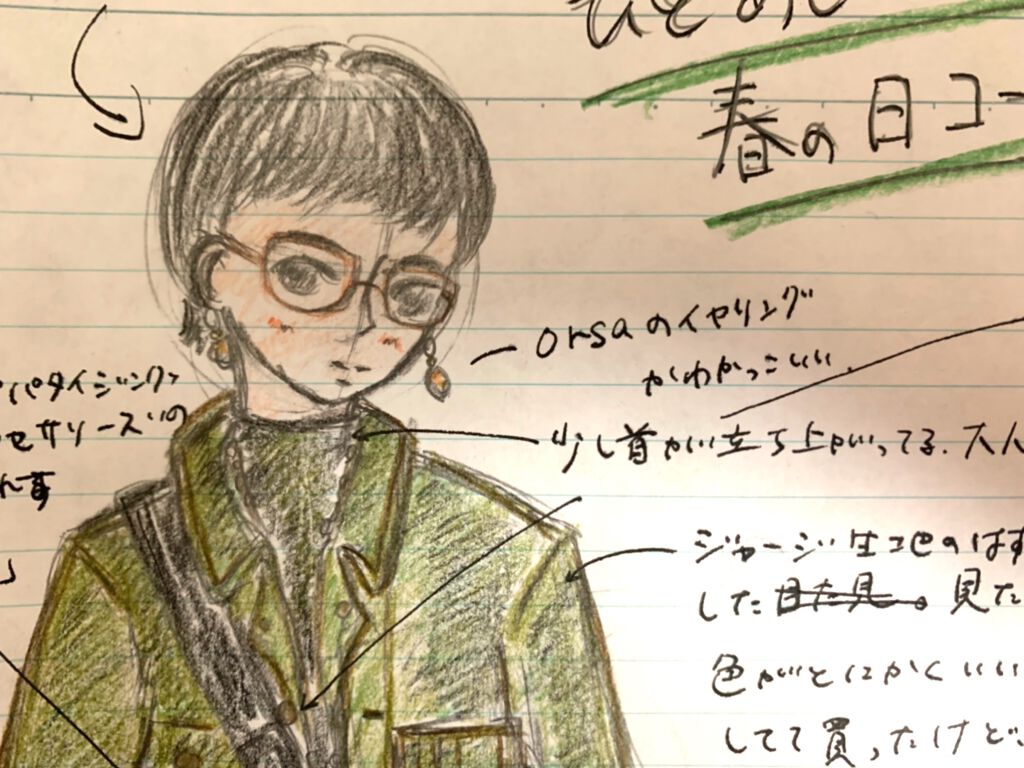 春の日コー
orsaのイヤリング
がかわかっこいい.
パタイジング
セサリーズの
少し首が立ち上がってる.大人
ジャージ生地の
した 見た
色がとにかくいい
してて買ったけど、